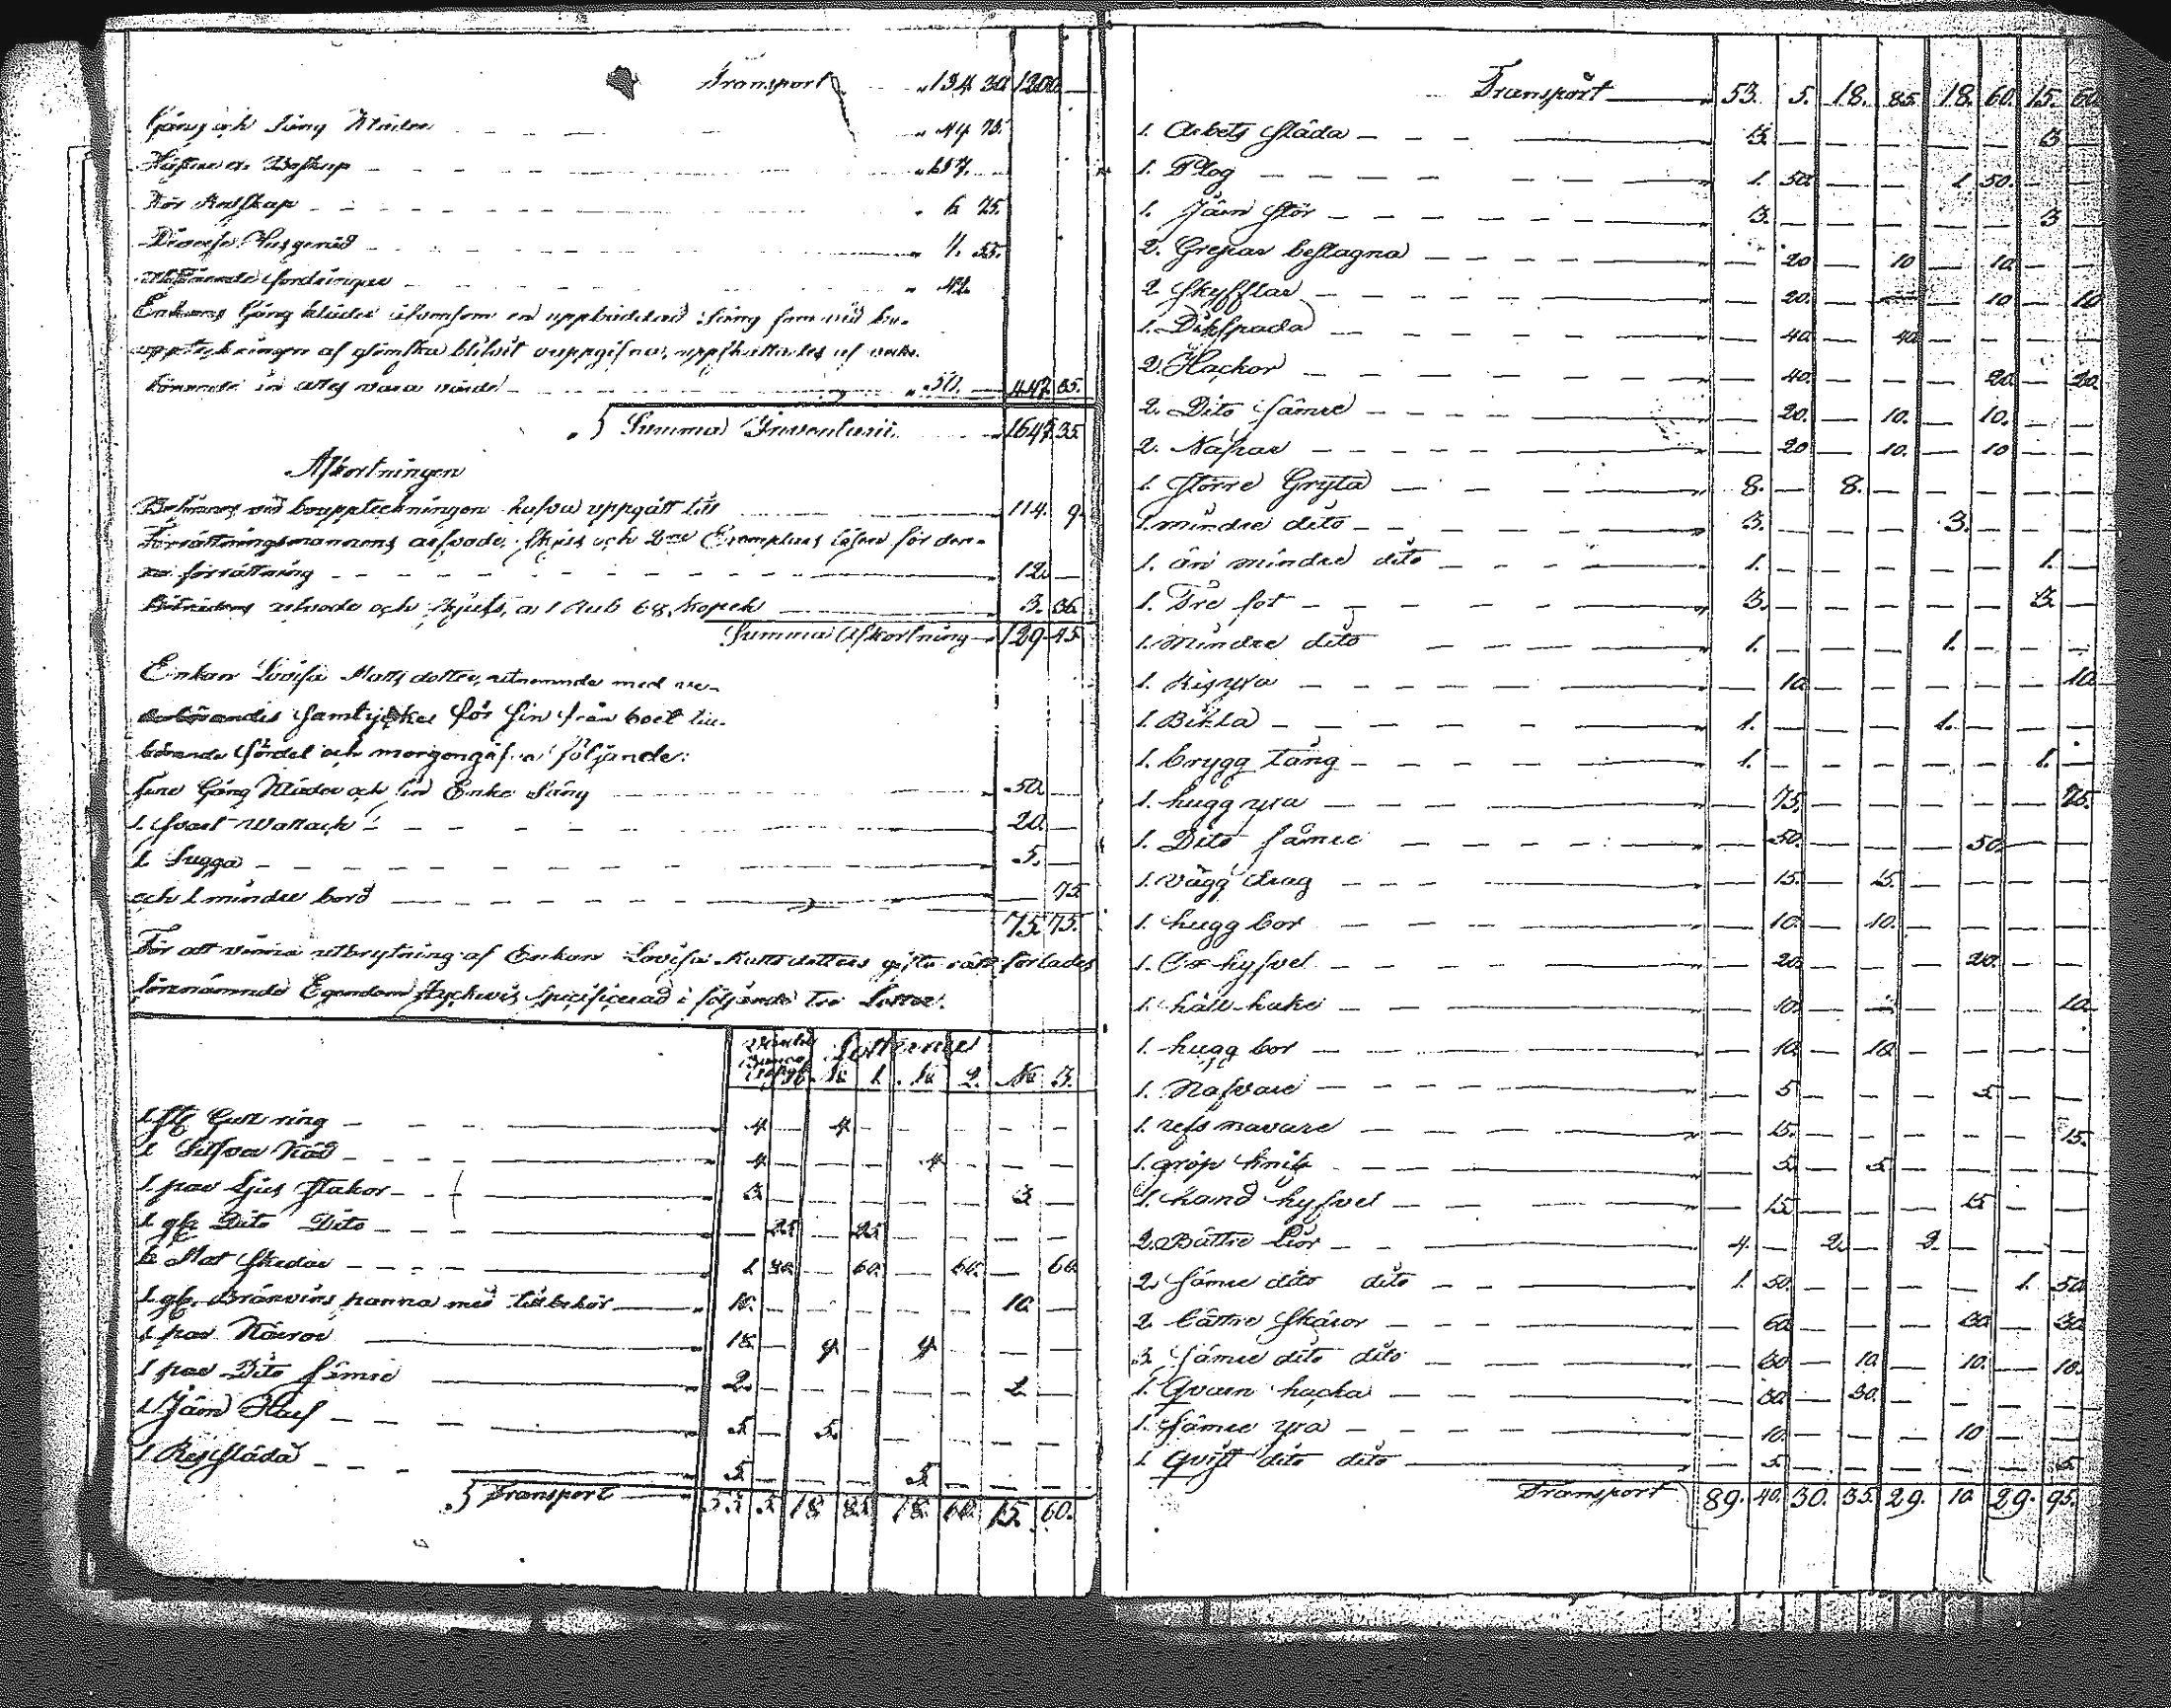 Transport " 134 30 1200 —
Gång och Säng Kläder " 44 75.
Hästar o. Boskap " 157. —
Kör Redskap " 6 75.
Diverse Husgeråd " 4. 55.
Fordringar " 42.
Enkans Gång kläder äfvensom en uppbäddad Säng som vid bo-
uppteckningen af glömska blifvit ouppgifna, uppskattades af
in alles vara värde " 50. — 447 35.
Summa Inventarii 1647. 35
Afkortningen
Befanns vid bouppteckningen hafva uppgått till 114. 9.
Förrättningsmannens arfvode, Skjuts och 2ne Exemplars lösen för den-
na förrättning 12. —
arfvode och Skjuts, a 1 Rub 68. Kopek 3. 36
Summa Afkortning 129. 45
Enkan Lovisa Matts dotter, utnämnde med
samtycke för sin från boet till-
hörande fördel och morgongåfva följande:
sine Gång Kläder och sin Enke Säng 50. —
1. Svart Wallack 20. —
1 Sugga 5. —
och 1 mindre bord — 75
75. 75.
För att vinna utbrytning af Enkan Lovisa Mattsdotters gifto rätt förlades
förenämnde Egendom Styckevis specificerad i följande tre Lotter.
Lotterne
No 1. No 2. No 3.
1 st. Gull ring 4 — 4 — — — — —
1 Silfver Käd 4 — — — 4 — — —
1 par Ljus Stakor 3 — — — — — 3 —
1 gl. Dito Dito — 25 — 25 — — — —
6 Mat Skedar 1 80 — 60. — 60. — 60
1 gl. Brännvins panna med tillbehör 10. — — — — — 10 —
1 par Kärror 18. — 9. — 9. — — —
1 par Dito sämre 2. — — — — — 2 —
1 Järn Harf 5 — 5. — — — — —
1 Res Släda 5 — — — 5 — — —
Transport 53. 5. 18. 85. 18. 60. 15. 60.
Transport 53. 5. 18. 85 18. 60. 15. 60
1. Arbets släda 3. — — — — — 3 —
1. Plog 1. 50. — — 1. 50. — —
1. Järn stör 3. — — — — — 3 —
2. Grepar beslagna — 20 — 10 — 10. — —
2. Skyfflar — 20. — — — 10 — 10
1. Dikspada — 40 — 40. — — — —
2. Hackor — 40. — — — 20. — 20.
2. Dito sämre — 20. — 10. — 10. — —
2. Nafrar — 20 — 10. — 10 — —
1. större Gryta 8. — 8. — — — — —
1. mindre dito 3. — — — 3. — — —
1. än mindre dito 1. — — — — — 1. —
1. Tre fot 3. — — — — — 3. —
1. Mindre dito 1. — — — 1. — — —
1. Risyxa — 10. — — — — — 10.
1. Bikla 1. — — — 1. — — —
1. brygg tång 1. — — — — — 1. —
1. hugg yxa — 75. — — — — — 75.
1. Dito sämre — 50. — — — 50. — —
1. vägg drag — 15. — 15. — — — —
1. hugg bor — 10. — 10. — — — —
1. Ox hyfvel — 20 — — — 20. — —
1. håll-hake — 10. — — — — — 10.
1. hugg bor — 10. — 10 — — — —
1. Nafvare — 5 — — — 5 — —
1. refs navare — 15. — — — — — 15.
1. gröp knif — 5 — 5. — — — —
1. hand hyfvel — 15 — — — 15 — —
2. Bättre Liar 4. — 2. — 2. — — —
2. sämre dito dito 1. 50. — — — — 1. 50.
2. bättre Skäror — 60 — — — 30 — 30.
3. sämre dito dito — 30 — 10 — 10. — 10.
1. Qvarn hacka — 30. — 30. — — — —
1. sämre yxa — 10. — — — 10 — —
1. Qvist dito dito — 5. — — — — — 5
Transport 89. 40. 30. 35. 29. 10. 29. 95.